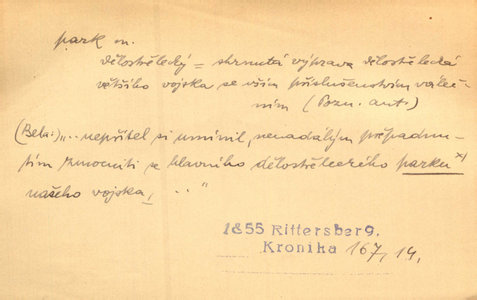 park m.
dělostřelecký = shrnutá výprava dělostřelecká
většího vojska se vším příslušenstvím váleč-
ním (Pozn. aut.)
(Beh:) „... nepřítel si umínil, nenadálým přepadnu-
tím zmocniti se hlavního dělostřeleckého parku x)
našeho vojska, ..."
1855 Rittersberg.
Kronika 167, 14.